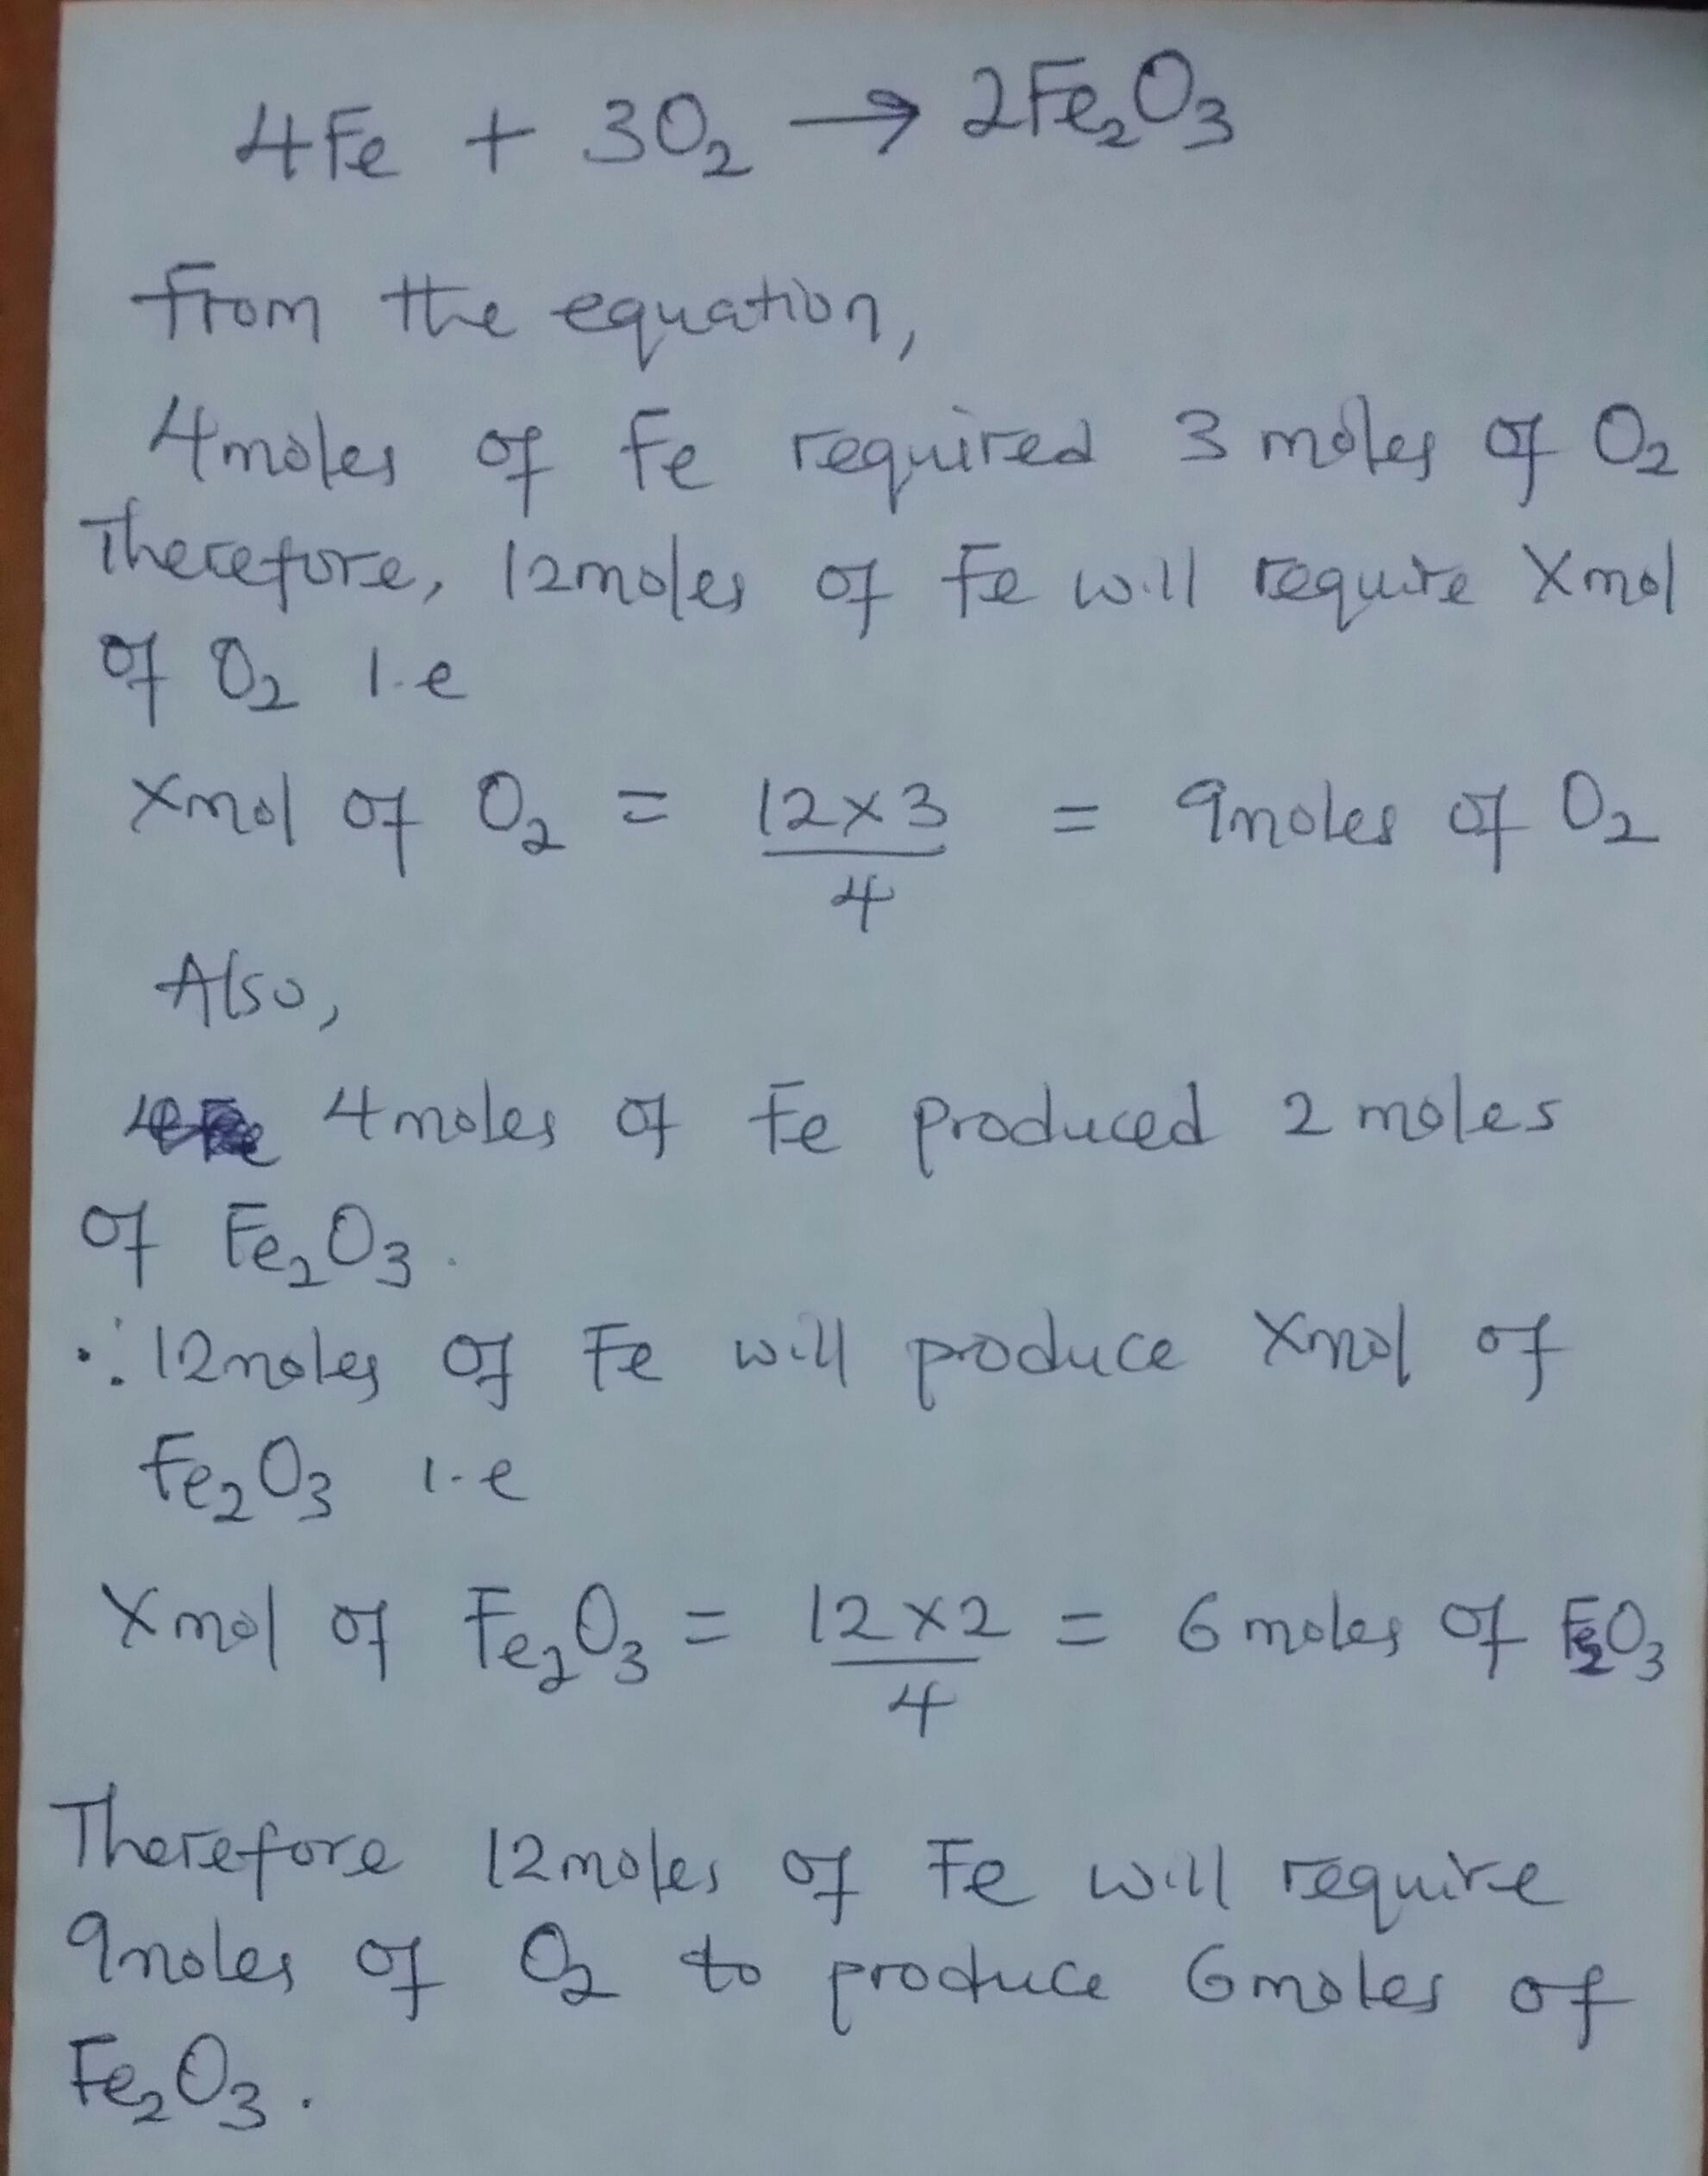 4Fe + 3O₂ → 2Fe₂O₃
From the equation,
4moles of Fe required 3 moles of O₂
Therefore, 12moles of Fe will require Xmol
of O₂ i.e
Xmol of O₂ = 12×3/4 = 9moles of O₂
Also,
4moles of Fe produced 2 moles
of Fe₂O₃.
∴ 12moles of Fe will produce Xmol of
Fe₂O₃ i.e
Xmol of Fe₂O₃ = 12×2/4 = 6 moles of Fe₂O₃
Therefore 12moles of Fe will require
9moles of O₂ to produce 6moles of
Fe₂O₃.